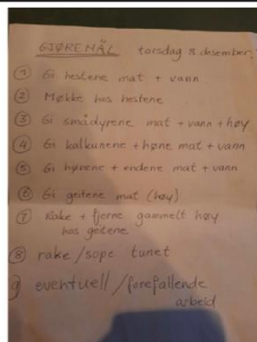 GJØREMÅL torsdag 8 desember:
① Gi hestene mat + vann
② Møkke hos hestene
③ Gi smådyrene mat + vann + høy
④ Gi kalkunene + høne mat + vann
⑤ Gi hønene + endene mat + vann
⑥ Gi geitene mat (høy)
⑦ Rake + fjerne gammelt høy
hos geitene
⑧ rake/sope tunet
9 eventuell/forefallende
arbeid